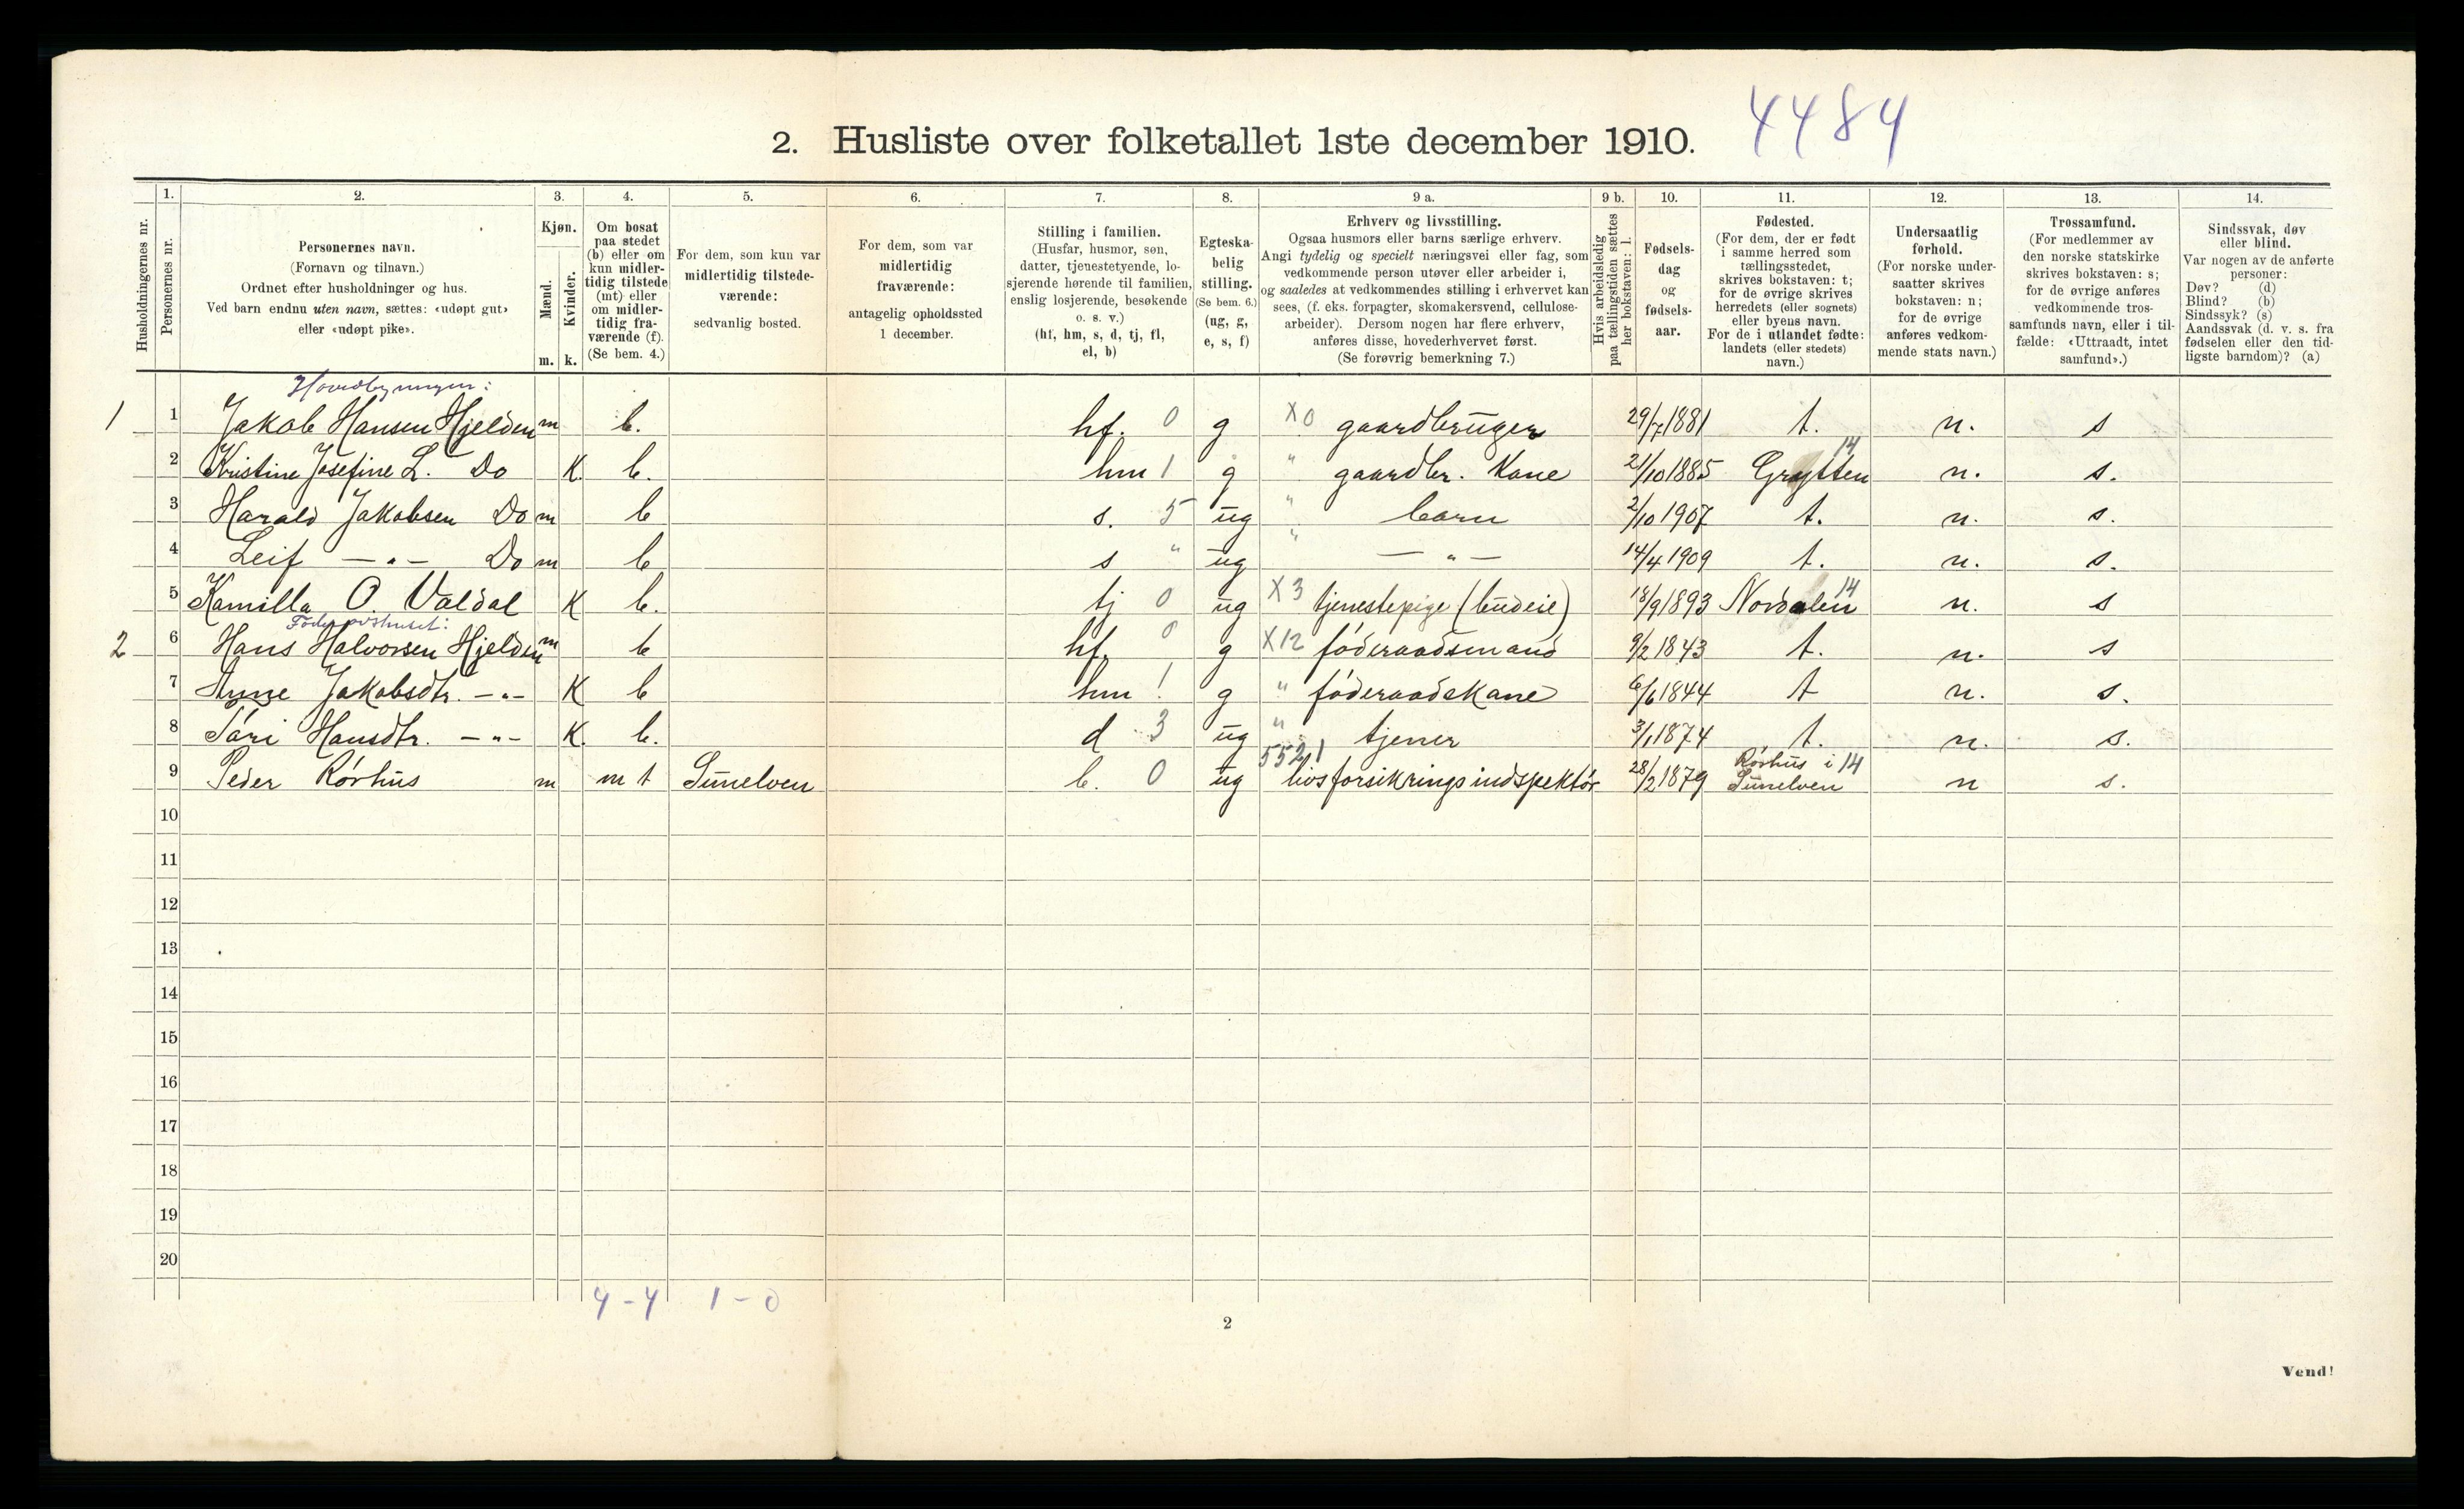 2. Husliste over folketallet 1ste december 1910. 4484
Husholdningernes nr.
1. Personernes nr.
2.
Personernes navn.
(Fornavn og tilnavn.)
Ordnet efter husholdninger og hus.
Ved barn endnu uten navn, sættes: «udøpt gut»
eller «udøpt pike».
3.
Kjøn.
Mænd. Kvinder.
m. k.
4.
Om bosat
paa stedet
(b) eller om
kun midler-
tidig tilstede
(mt) eller
om midler-
tidig fra-
værende (f).
(Se bem. 4.)
5.
For dem, som kun var
midlertidig tilstede-
værende:
sedvanlig bosted.
6.
For dem, som var
midlertidig
fraværende:
antagelig opholdssted
1 december.
7.
Stilling i familien.
(Husfar, husmor, søn,
datter, tjenestetyende, lo-
sjerende hørende til familien,
enslig losjerende, besøkende
o. s. v.)
(hf, hm, s, d, tj, fl,
el, b)
8.
Egteska-
belig
stilling.
(Se bem. 6.)
(ug, g,
e, s, f)
9 a.
Erhverv og livsstilling.
Ogsaa husmors eller barns særlige erhverv.
Angi tydelig og specielt næringsvei eller fag, som
vedkommende person utøver eller arbeider i,
og saaledes at vedkommendes stilling i erhvervet kan
sees, (f. eks. forpagter, skomakersvend, cellulose-
arbeider). Dersom nogen har flere erhverv,
anføres disse, hovederhvervet først.
(Se forøvrig bemerkning 7.)
9 b.
Hvis arbeidsledig
paa tællingstiden sættes
her bokstaven: l.
10.
Fødsels-
dag
og
fødsels-
aar.
11.
Fødested.
(For dem, der er født
i samme herred som
tællingsstedet,
skrives bokstaven: t;
for de øvrige skrives
herredets (eller sognets)
eller byens navn.
For de i utlandet fødte:
landets (eller stedets)
navn.)
12.
Undersaatlig
forhold.
(For norske under-
saatter skrives
bokstaven: n;
for de øvrige
anføres vedkom-
mende stats navn.)
13.
Trossamfund.
(For medlemmer av
den norske statskirke
skrives bokstaven: s;
for de øvrige anføres
vedkommende tros-
samfunds navn, eller i til-
fælde: «Uttraadt, intet
samfund».)
14.
Sindssvak, døv
eller blind.
Var nogen av de anførte
personer:
Døv? (d)
Blind? (b)
Sindssyk? (s)
Aandssvak (d. v. s. fra
fødselen eller den tid-
ligste barndom)? (a)
Hovedbygningen:
1 1 Jakob Hansen Hjelden m b. hf. 0 g X0 gaardbruger 29/7 1881 t. n. s
2 Kristine Josefine L. Do K. b. hm 1 g " gaardbr. Kone 21/10 1885 Grytten 14 n. s.
3 Harald Jakobsen Do m b s. 5 ug " barn 2/10 1907 t. n. s.
4 Leif — " — Do m b s " ug " — " — 14/4 1909 t. n. s.
5 Kamilla O. Valdal K b. tj 0 ug X3 tjenestepige (budeie) 18/9 1893 Nordalen 14 n. s
2 6 Hans Halvorsen Hjelden m b hf. 0 g X12 føderaadsmand 9/2 1843 t. n. s
7 Anne Jakobsdtr. — " — K b hm 1 g " føderaadskone 6/6 1844 t n. s.
8 Sari Hansdtr. — " — K. b. d 3 ug " tjener 3/1 1874 t. n. s.
9 Peder Rørhus m mt Sunelven b. 0 ug 552,1 livsforsikringsindspektør 28/2 1879 Rørhus i Sunelven 14 n s.
10
11
12
13
14
15
16
17
18
19
20
4 - 4 1 - 0
2
Vend!